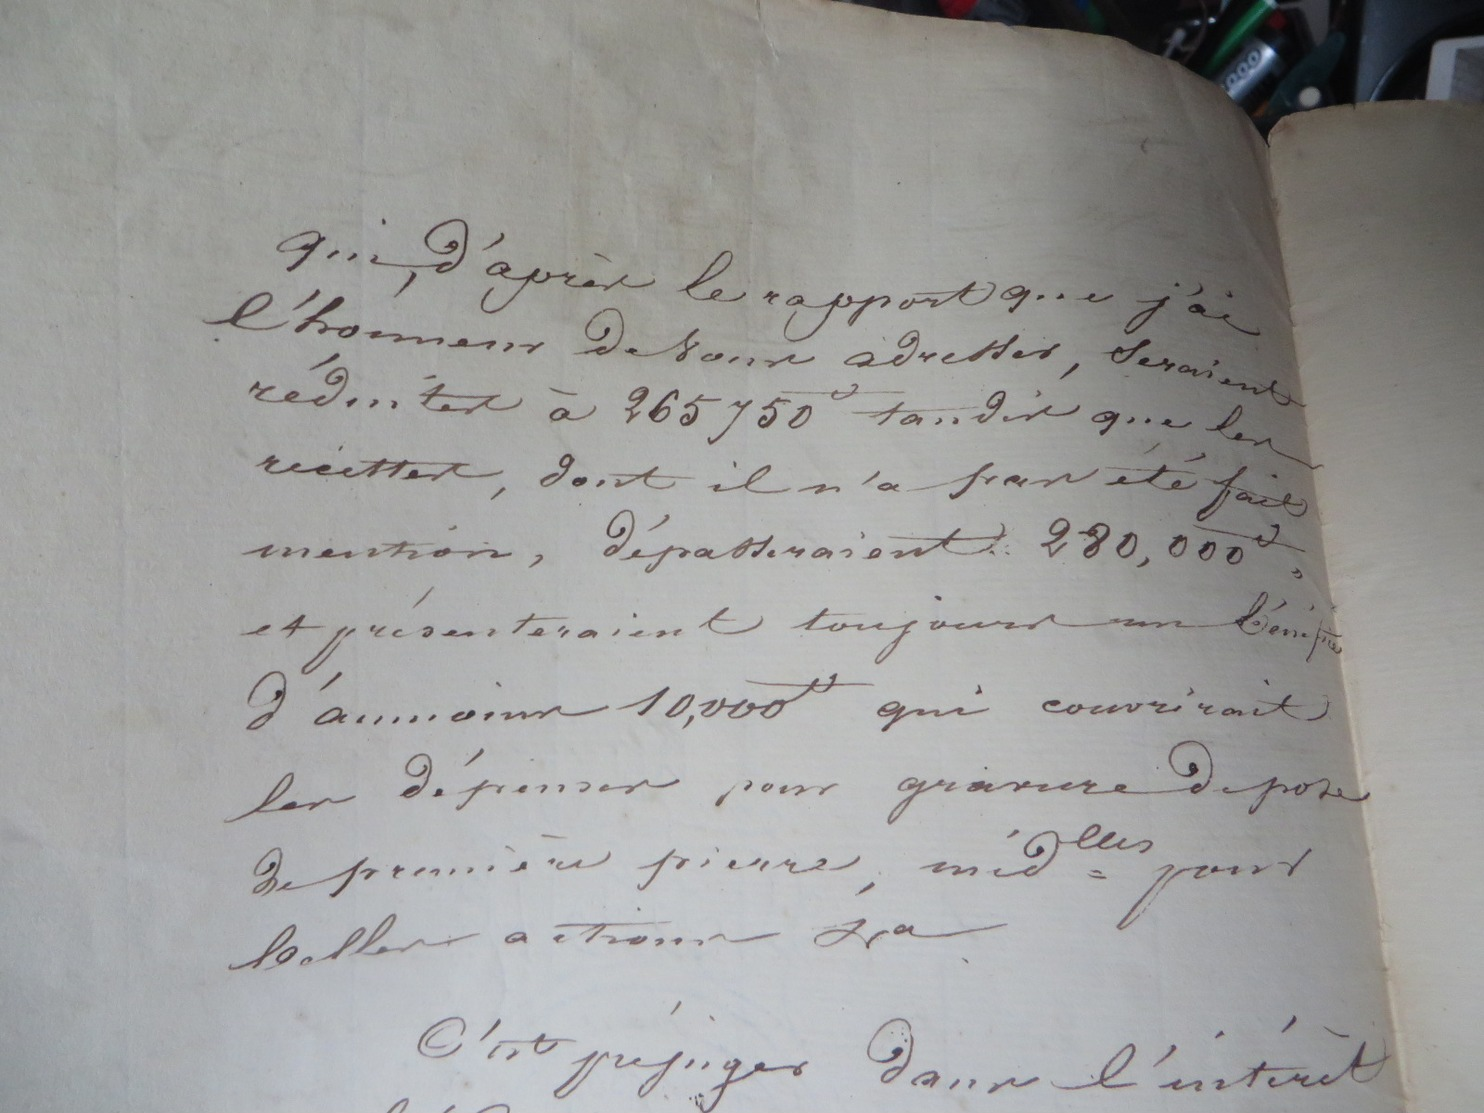 qui, d'après le rapport que j'ai
l'honneur de vous adresser, seraient
réduites à 265750 tandis que les
recettes, dont il n'a pas été fait
mention, dépasseraient 280,000
et présenteraient toujours un bénéfice
d'aumoins 10,000 qui couvrirait
les dépenses pour gravure de pose
de première pierre, méd^lles pour
belles actions &a
C'est préjuger dans l'intérêt
000